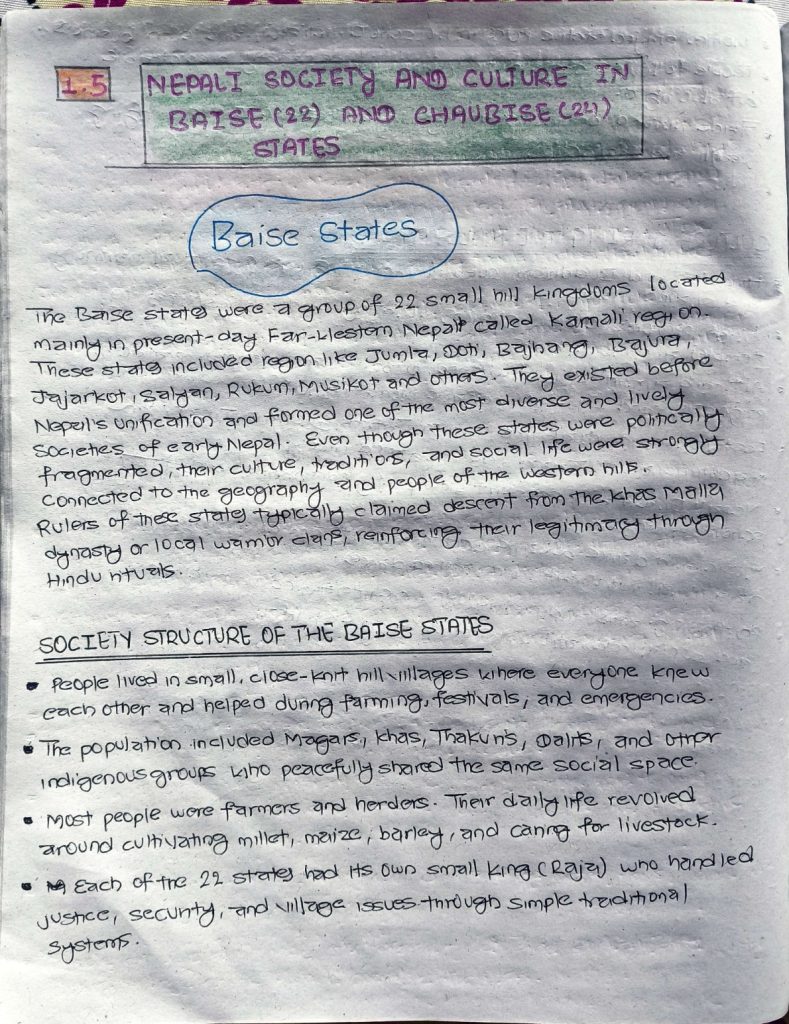 1.5 NEPALI SOCIETY AND CULTURE IN
BAISE (22) AND CHAUBISE (24)
STATES
Baise States
The Baise states were a group of 22 small hill kingdoms located
mainly in present-day Far-Western Nepal called Karnali region.
These states included region like Jumla, Doti, Bajhang, Bajura,
Jajarkot, Salyan, Rukum, Musikot and others. They existed before
Nepal's unification and formed one of the most diverse and lively
societies of early Nepal. Even though these states were politically
fragmented, their culture, traditions, and social life were strongly
connected to the geography and people of the western hills.
Rulers of these states typically claimed descent from the Khas Malla
dynasty or local warrior clans, reinforcing their legitimacy through
Hindu rituals.
SOCIETY STRUCTURE OF THE BAISE STATES
• People lived in small, close-knit hill villages where everyone knew
each other and helped during farming, festivals, and emergencies.
• The population included Magars, Khas, Thakuris, Dalits, and other
indigenous groups who peacefully shared the same social space.
• Most people were farmers and herders. Their daily life revolved
around cultivating millet, maize, barley, and caring for livestock.
• Each of the 22 states had its own small king (Raja) who handled
justice, security, and village issues through simple traditional
systems.